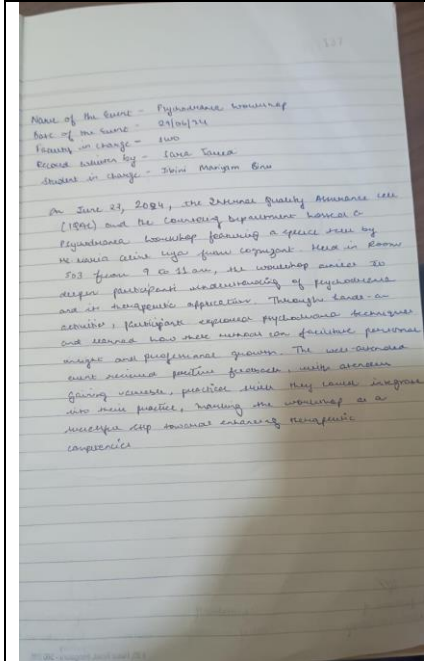 Name of the Event - Psychodrama Workshop
Date of the Event - 27/06/24
Faculty in charge -
Record written by - Sara
Student in charge - Mariyam Binu
On June 27, 2024, the Internal Quality Assurance Cell
(IQAC) and the Counseling Department hosted a
Psychodrama Workshop featuring a speech by
Ms Maria from Cognizant. Held in Room
503 from 9 to 11 am, the workshop aimed to
deepen participants understanding of psychodrama
and its therapeutic applications. Through hands-on
activities, participants explored psychodrama techniques
and learned how these methods can facilitate personal
insight and professional growth. The well-attended
event received positive feedback, with attendees
gaining valuable, practical skills they could integrate
into their practice, marking the workshop as a
successful step towards enhancing therapeutic
competencies